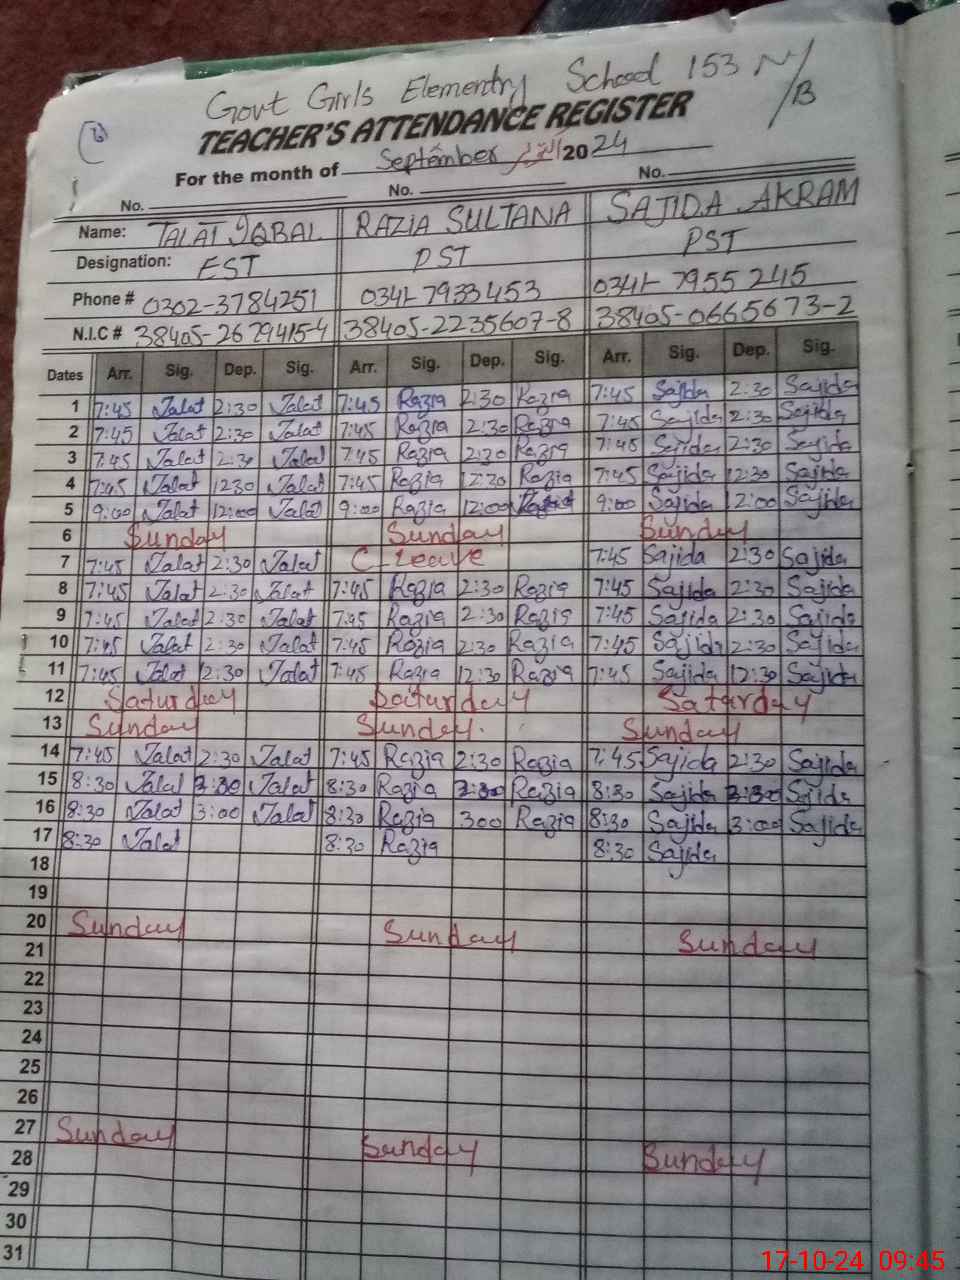 Govt Girls Elementry School 153 N/B
6
TEACHER'S ATTENDANCE REGISTER
For the month of September 2024
No. No. No.
Name: TALAT IQBAL RAZIA SULTANA SAJIDA AKRAM
Designation: EST PST PST
Phone # 0302-3784251 0341-7933453 0341-7955245
N.I.C # 38405-2679415-4 38405-2235607-8 38405-0665673-2
Dates Arr. Sig. Dep. Sig. Arr. Sig. Dep. Sig. Arr. Sig. Dep. Sig.
1 7:45 Talat 2:30 Talat 7:45 Razia 2:30 Razia 7:45 Sajida 2:30 Sajida
2 7:45 Talat 2:30 Talat 7:45 Razia 2:30 Razia 7:45 Sajida 2:30 Sajida
3 7:45 Talat 2:30 Talat 7:45 Razia 2:30 Razia 7:45 Sajida 2:30 Sajida
4 7:45 Talat 12:30 Talat 7:45 Razia 12:30 Razia 7:45 Sajida 12:30 Sajida
5 9:00 Talat 12:00 Talat 9:00 Razia 12:00 Razia 9:00 Sajida 12:00 Sajida
6 Sunday Sunday Sunday
7 7:45 Talat 2:30 Talat C-Leave 7:45 Sajida 2:30 Sajida
8 7:45 Talat 2:30 Talat 7:45 Razia 2:30 Razia 7:45 Sajida 2:30 Sajida
9 7:45 Talat 2:30 Talat 7:45 Razia 2:30 Razia 7:45 Sajida 2:30 Sajida
10 7:45 Talat 2:30 Talat 7:45 Razia 2:30 Razia 7:45 Sajida 2:30 Sajida
11 7:45 Talat 12:30 Talat 7:45 Razia 12:30 Razia 7:45 Sajida 12:30 Sajida
12 Saturday Saturday Saturday
13 Sunday Sunday. Sunday
14 7:45 Talat 2:30 Talat 7:45 Razia 2:30 Razia 7:45 Sajida 2:30 Sajida
15 8:30 Talat Talat 8:30 Razia Razia 8:30 Sajida Sajida
16 8:30 Talat 3:00 Talat 8:30 Razia 300 Razia 8:30 Sajida 3:00 Sajida
17 8:30 Talat 8:30 Razia 8:30 Sajida
18
19
20 Sunday Sunday Sunday
21
22
23
24
25
26
27 Sunday Sunday Sunday
28
29
30
31
17-10-24 09:45